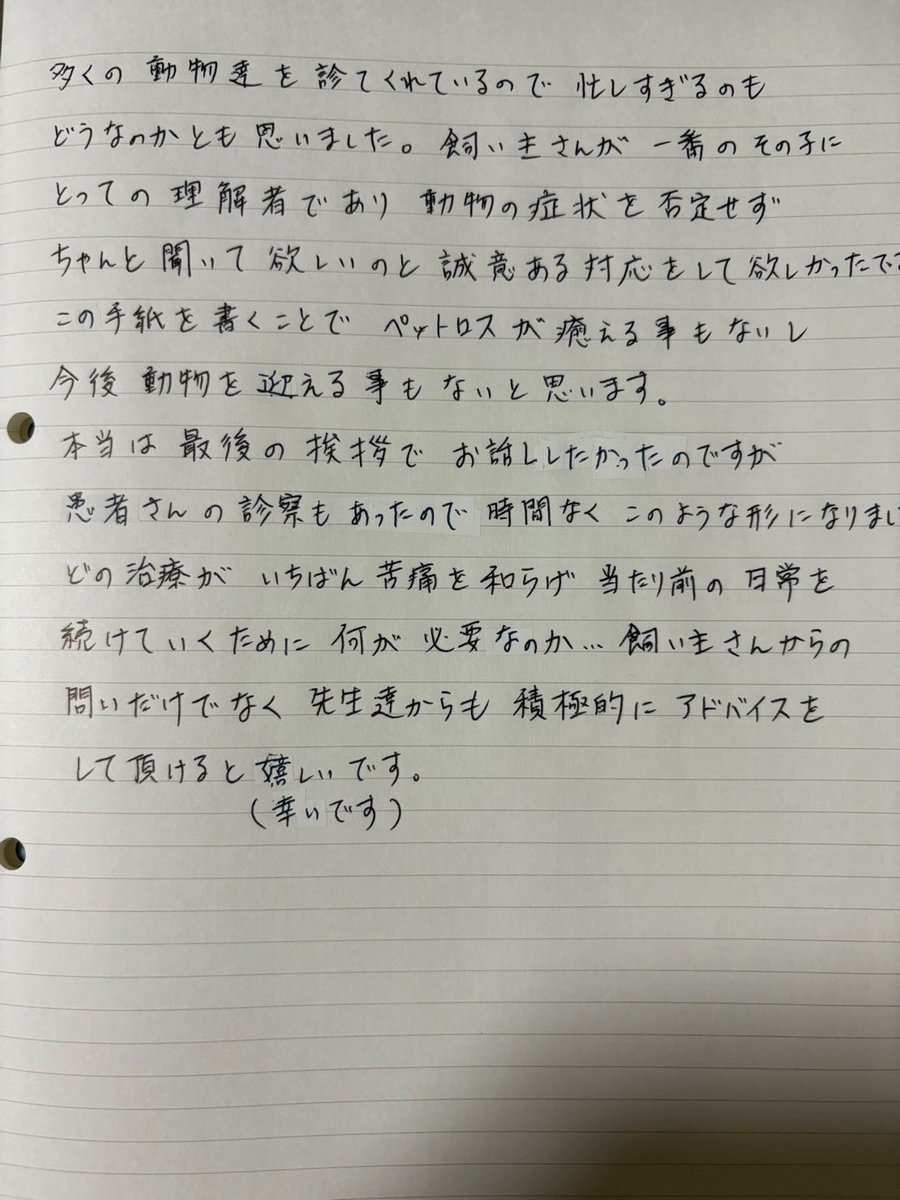 多くの動物達を診てくれているので 忙しすぎるのも
どうなのかとも思いました。飼い主さんが 一番のその子に
とっての理解者であり 動物の症状を否定せず
ちゃんと聞いて欲しいのと誠意ある対応をして欲しかったです
この手紙を書くことで ペットロスが癒える事もないし
今後動物を迎える事もないと思います。
本当は最後の挨拶で お話ししたかったのですが
患者さんの診察もあったので時間なく このような形になりまし
どの治療が いちばん苦痛を和らげ 当たり前の日常を
続けていくために何が必要なのか…飼い主さんからの
問いだけでなく 先生達からも 積極的に アドバイスを
して頂けると嬉しいです。
(幸いです)